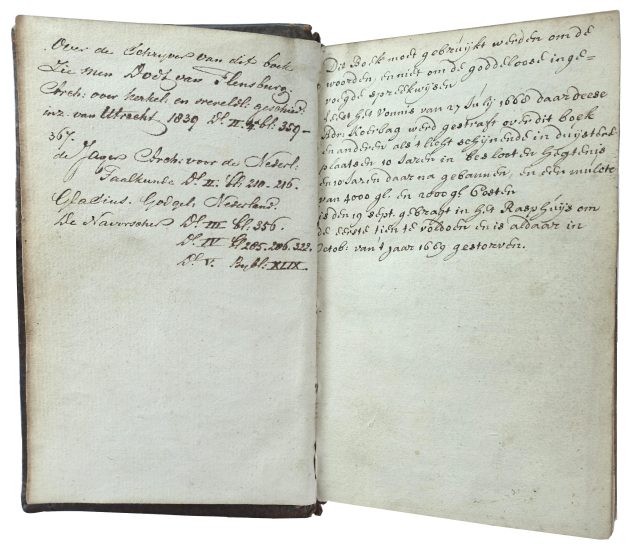 Over de Schrijver van dit boek
Zie men Dodt van Flensburg
Arch: over kerkel. en wereldl. geschied:
inz. van Utrecht 1839 Dl. II. bl: 359–
367.
de Jager Arch: voor de Nederl:
Taalkunde Dl. II. bl. 210–216.
Glasius. Godgel. Nederland.
De Navorscher Dl. III bl. 356.
Dl. IV bl 285. 286. 322.
Dl. V. Bijbl: XLIX.
Dit Boek moet gebruijkt werden om de
woorden, en niet om de goddeloose inge-
voegde spreekwijsen
leest het Vonnis van 27 Julij 1668 daar deese
Adri: Koerbag werd gestraft over dit boek
en anderen als t licht schijnende in duystere
plaetsen 10 Jaren in besloten hegtenis
en 10 Jaren daar na gebannen, en een mulcte
van 4000 gl. en 2000 gl Costen
is den 19 sept. gebragt in het Rasphuijs om
de eerste tien te voldoen en is aldaar in
octob: van 't jaar 1669 gestorven.